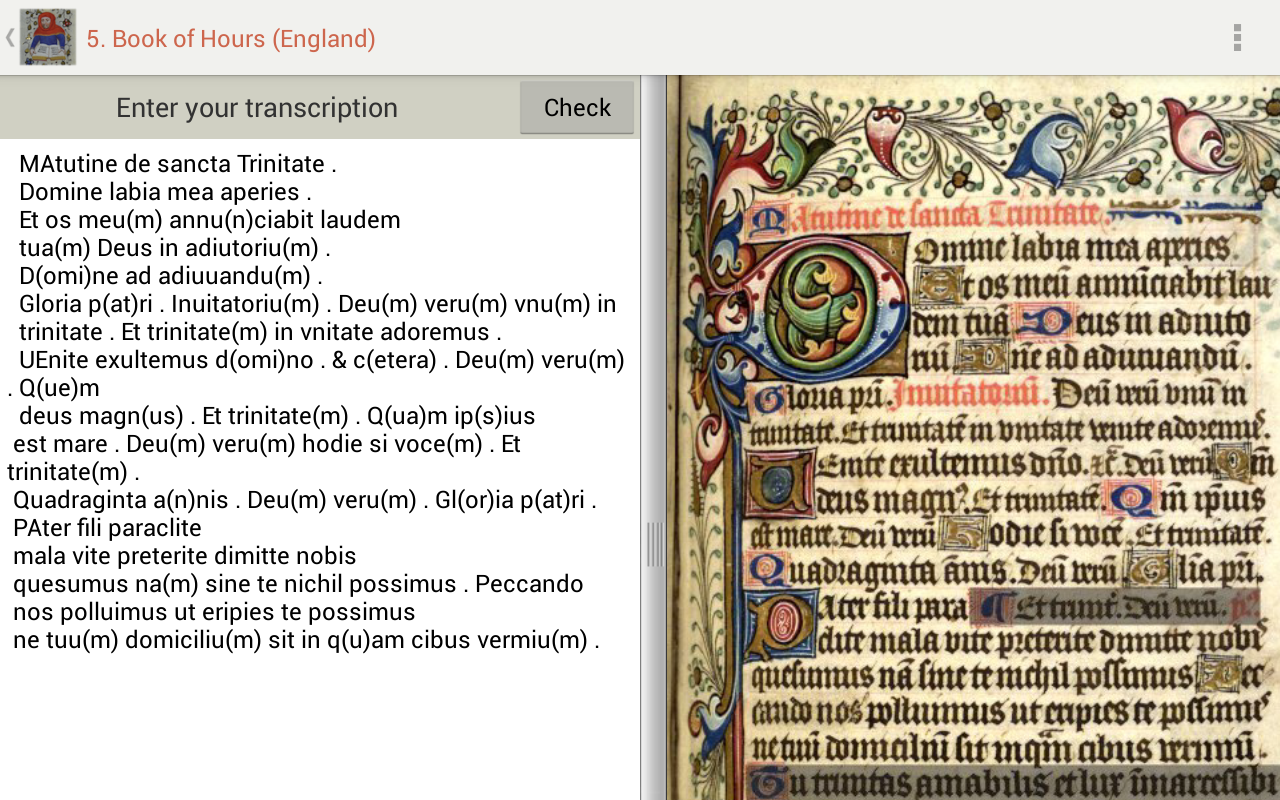 5. Book of Hours (England)
Enter your transcription
Check
MAtutine de sancta Trinitate .
Domine labia mea aperies .
Et os meu(m) annu(n)ciabit laudem
tua(m) Deus in adiutoriu(m) .
D(omi)ne ad adiuuandu(m) .
Gloria p(at)ri . Inuitatoriu(m) . Deu(m) veru(m) vnu(m) in
trinitate . Et trinitate(m) in vnitate adoremus .
UEnite exultemus d(omi)no . & c(etera) . Deu(m) veru(m)
. Q(ue)m
deus magn(us) . Et trinitate(m) . Q(ua)m ip(s)ius
est mare . Deu(m) veru(m) hodie si voce(m) . Et
trinitate(m) .
Quadraginta a(n)nis . Deu(m) veru(m) . Gl(or)ia p(at)ri .
PAter fili paraclite
mala vite preterite dimitte nobis
quesumus na(m) sine te nichil possimus . Peccando
nos polluimus ut eripies te possimus
ne tuu(m) domiciliu(m) sit in q(u)am cibus vermiu(m) .
MAtutine de sancta Trinitate.
Domine labia mea apries
Et os meū annūciabit lau
dem tuā Deus in adiuto
riū Dne ad adiuuandū.
Gloria pri. Inuitatoriū. Deū verū vnū in
trinitate. Et trinitatē in vnitate venite adorem⁹.
UEnite exultemus dño. ⁊c̄. Deū verū Qm
deus magn⁹. Et trinitatē. Qm ipius
est mare. Deū verū Hodie si vocē. Et trinitatē.
Quadraginta ānis. Deū verū Glia pri.
PAter fili para Et trinit. Deū verū. p⁹
clite mala vite preterite dimitte nobis
quesumus nā sine te nichil possimus Pec
cando nos polluimus ut eripies te possimus
ne tuū domiciliū sit inqm cibus vermiū.
Tu trinitas amabilis et lux īmarcessibi